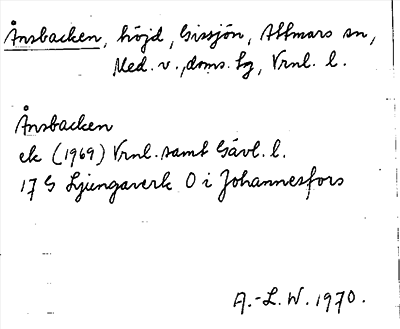 Ånsbacken, höjd, Gissjön, Attmars sn,
Med. v. doms. tg, Vrnl. l.
Ånsbacken
ek (1969) Vrnl. samt Gävl. l.
17 G Ljungaverk O i Johannesfors
A.-L. W. 1970.